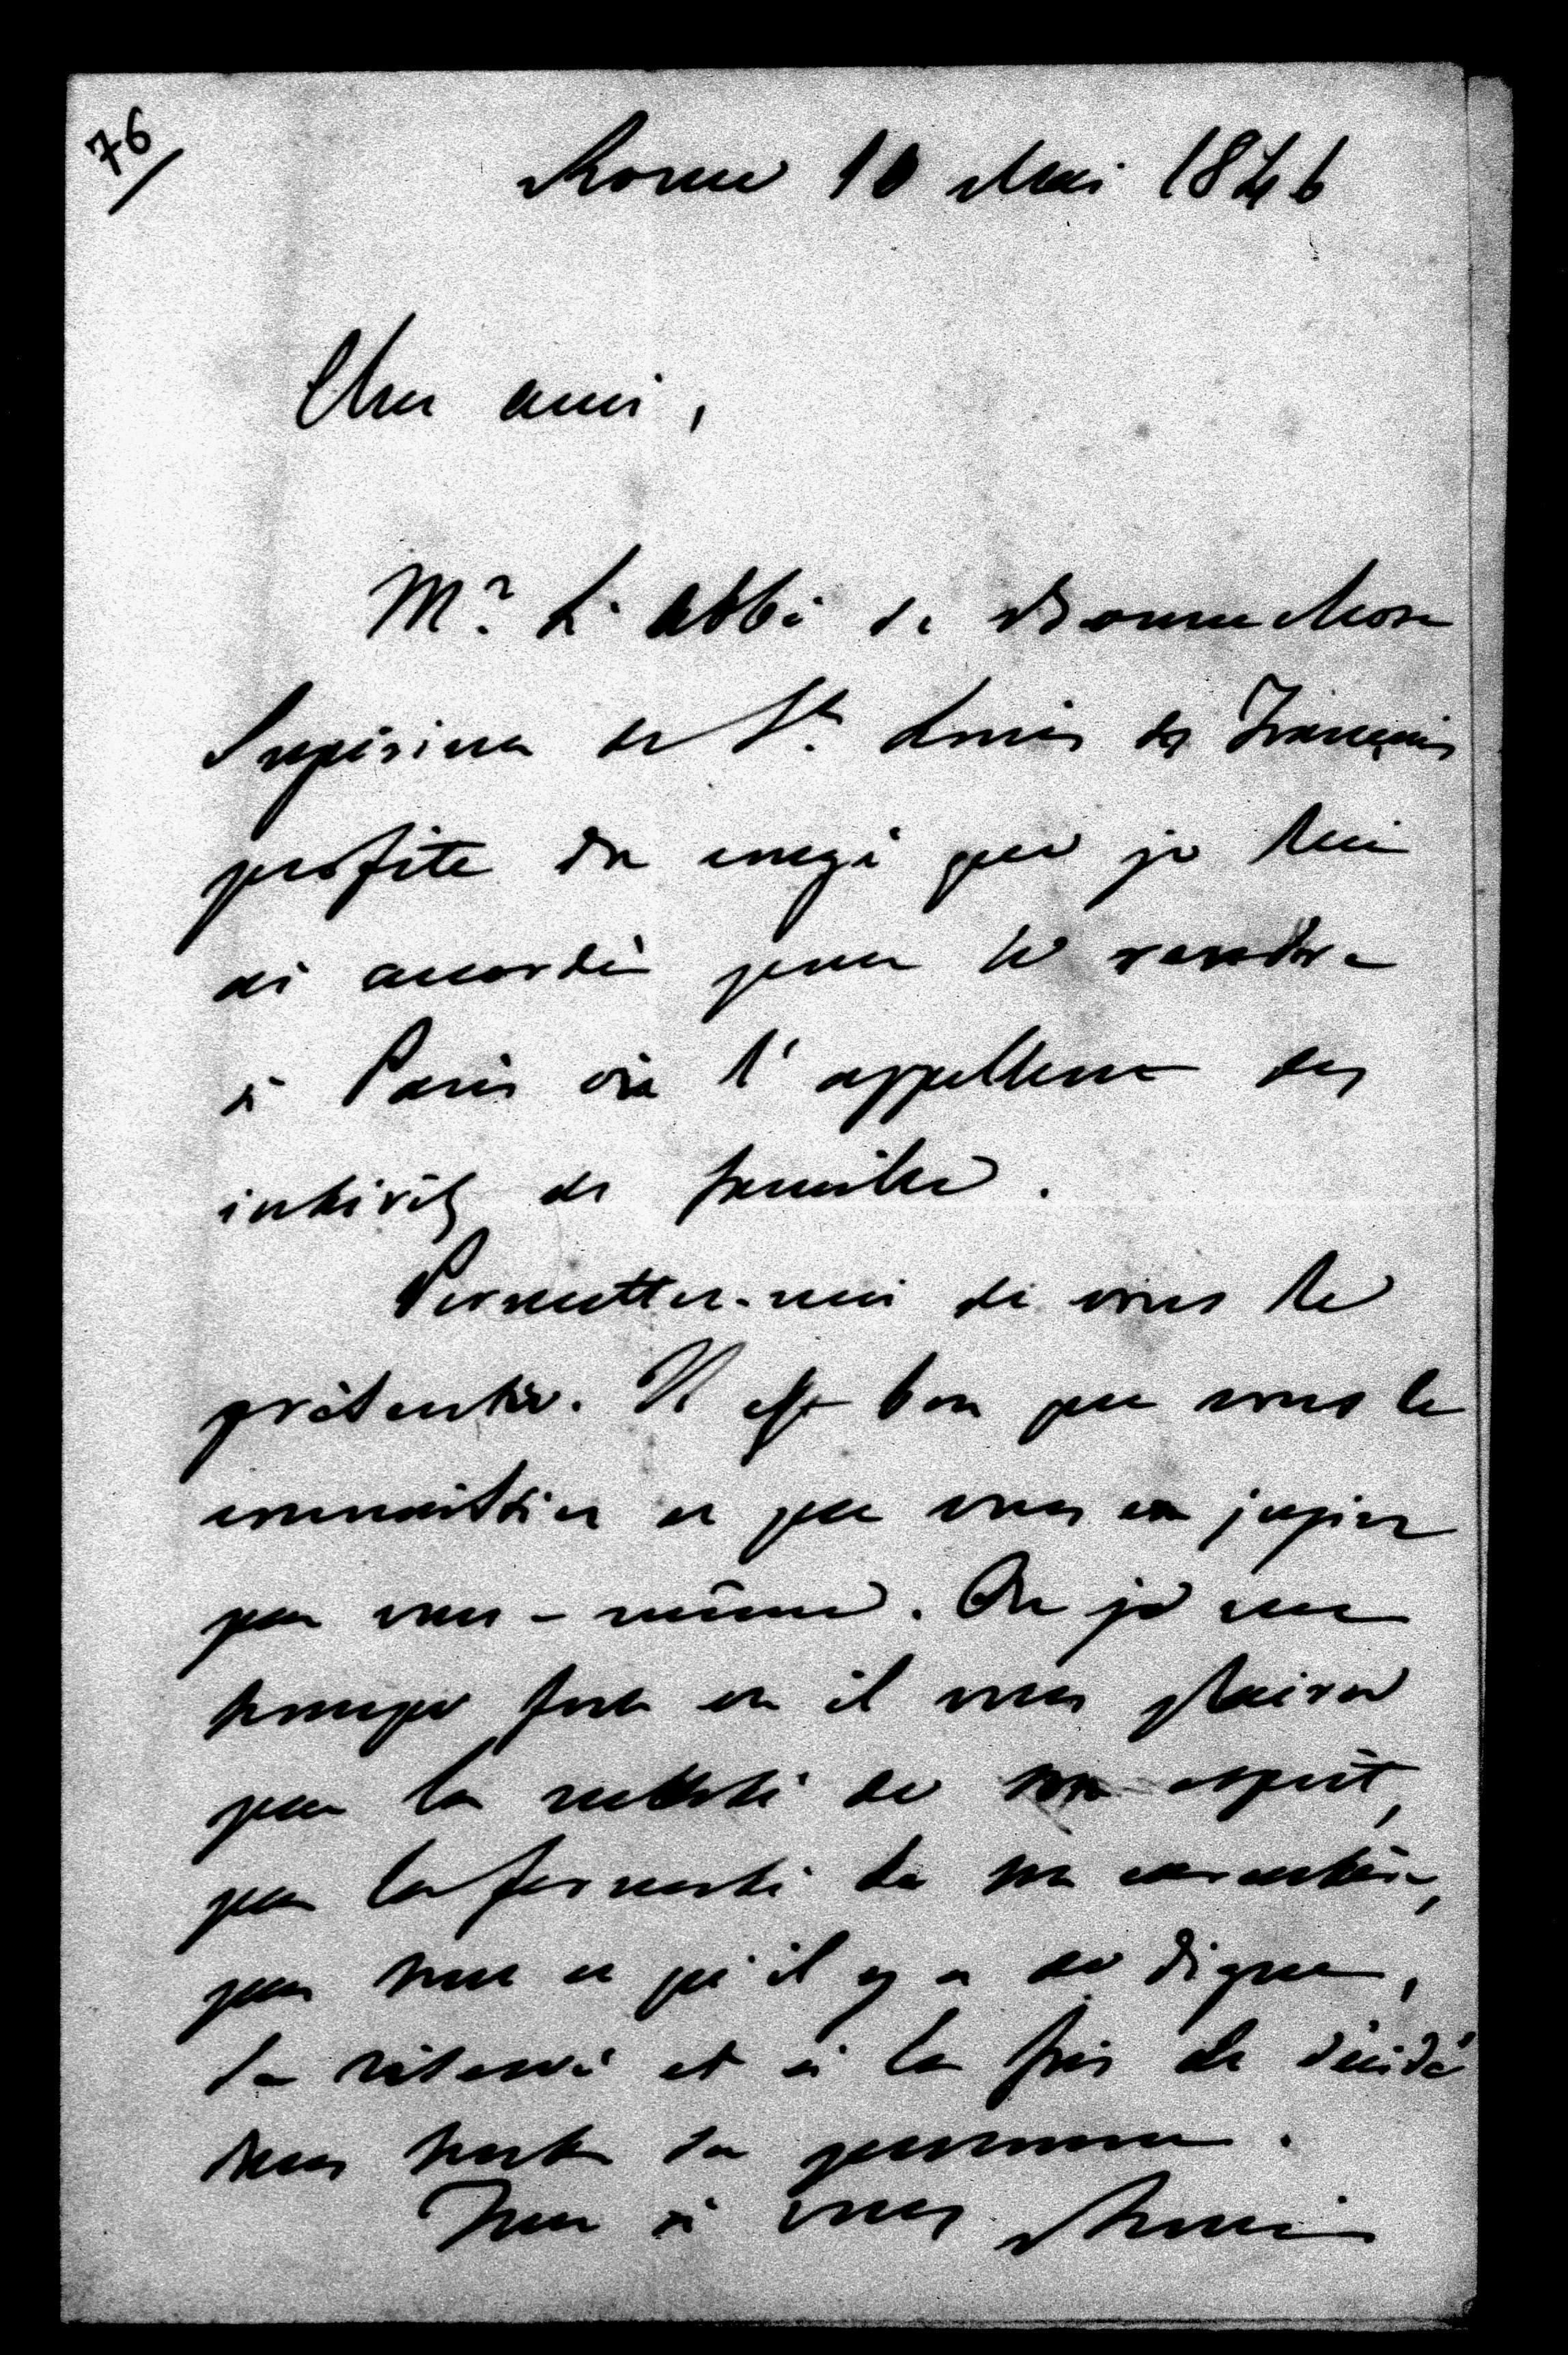 76
Rome 10 Mai 1846
Cher ami,
Mr. L'abbé de Bonnechose
Supérieur de St. Louis des Français
profite du congé que je lui
ai accordé pour se rendre
à Paris où l'appellent des
intérêts de famille.
Permettez-moi de vous le
présenter. Il est bon que vous le
connaissiez et que vous en jugiez
par vous-même. Ou je me
trompe fort ou il vous plaira
par la netteté de son esprit,
par la fermeté de son caractère,
par tout ce qu'il y a de digne,
de réservé et à la fois de décidé
dans toute sa personne.
Tout à vous Rossi